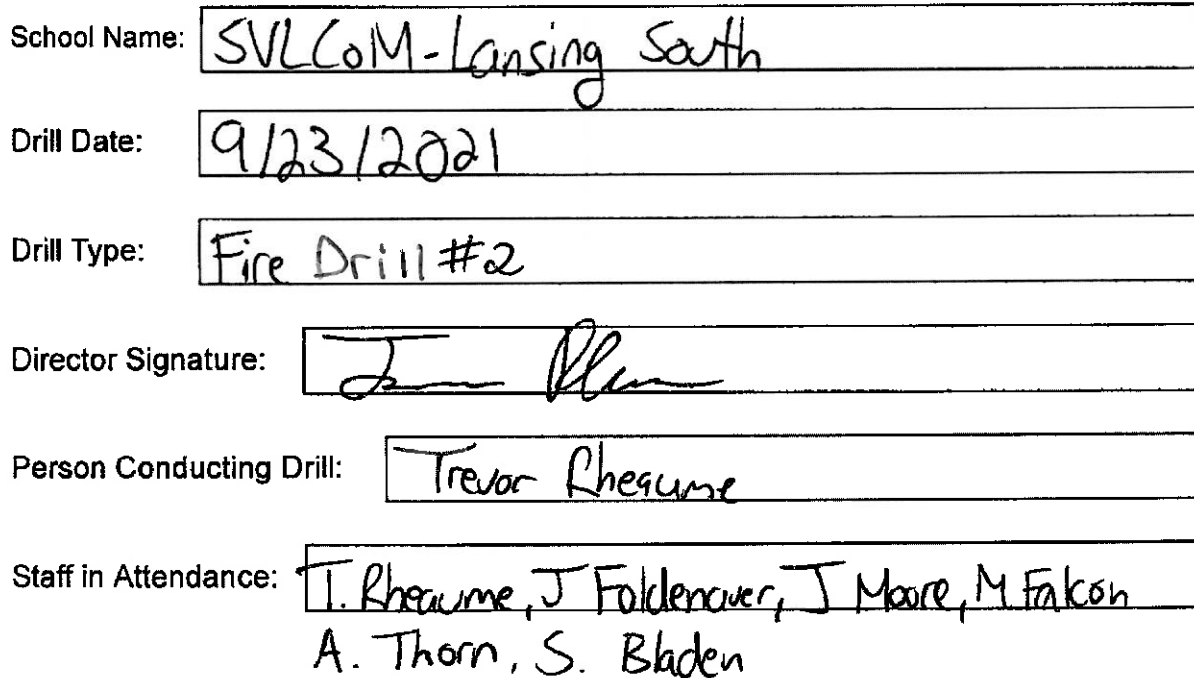 School Name: SVLCoM-Lansing South
Drill Date: 9/23/2021
Drill Type: Fire Drill #2
Director Signature:
Person Conducting Drill: Trevor Rheaume
Staff in Attendance: T. Rheaume, J Foldenauer, J Moore, M Falcon
A. Thorn, S. Bladen